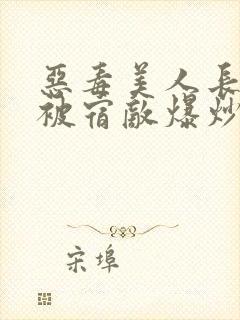 惡毒美人長
被宿敵爆炒
宋埠